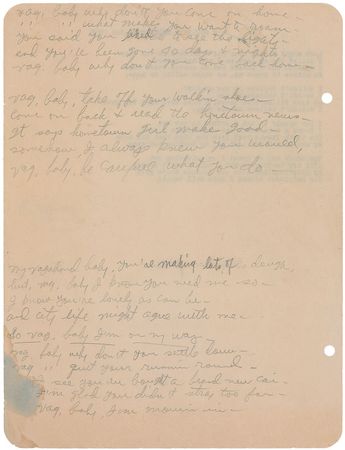 vag, baby why don't you come on home –
" " " what makes you want to roam
You said you liked to see the sights
and you've been gone 90 days & nights
vag. baby why don't you come back home –
vag, baby, take off your walkin shoes –
come on back & read the hometown news –
It says hometown girl makes good –
somehow, I always knew you would,
vag, baby, be careful what you do –
my vagabond baby, you're making lots of dough,
but, vag, baby I know you need me so –
I know you're lonely as can be –
and city life might agree with me –
so vag. baby I'm on my way –
vag. baby why don't you settle down –
vag " " quit your runnin round –
I see you've bought a brand new car –
I'm glad you didn't stray too far –
vag. baby, I'm movin in –